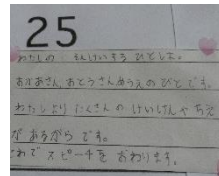 25
わたしの そんけいするひとは、
おかあさん、おとうさんめうえのひとです。
わたしよりたくさんの けいけんやちえ
が あるからです。
これで スピーチを おわります。